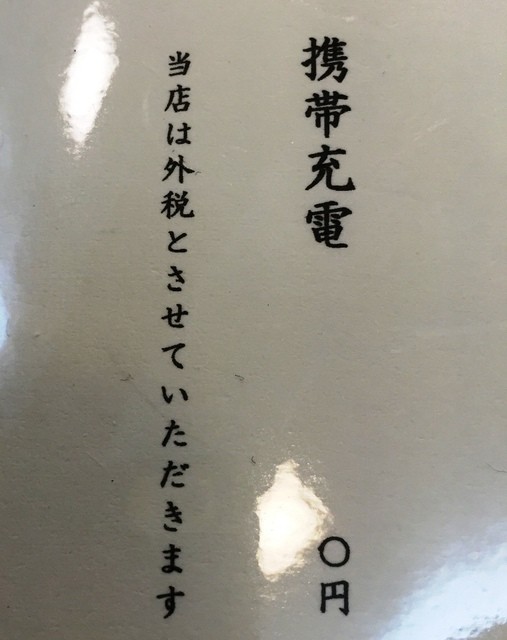 携帯充電 〇円
当店は外税とさせていただきます